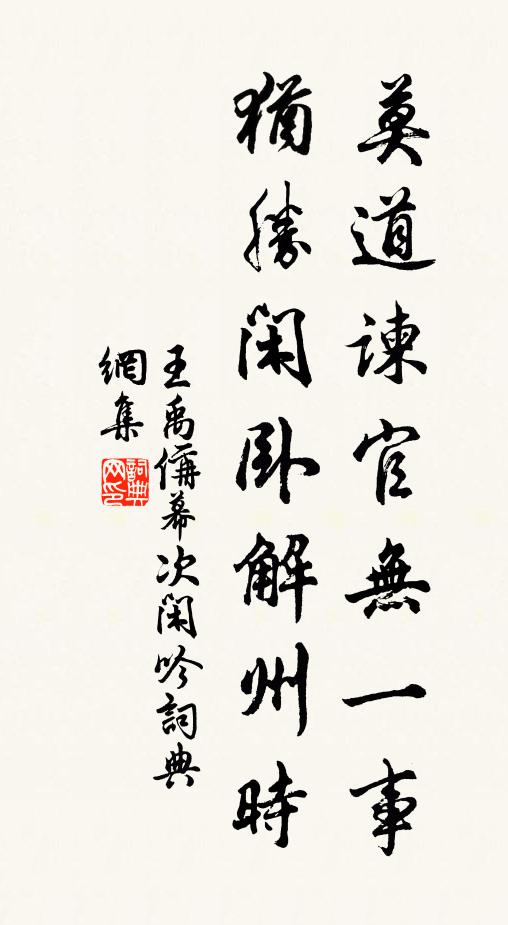 莫道諫官無一事
猶勝閑卧解州時
王禹偁幕次閑吟詞典
網集
詞典網印